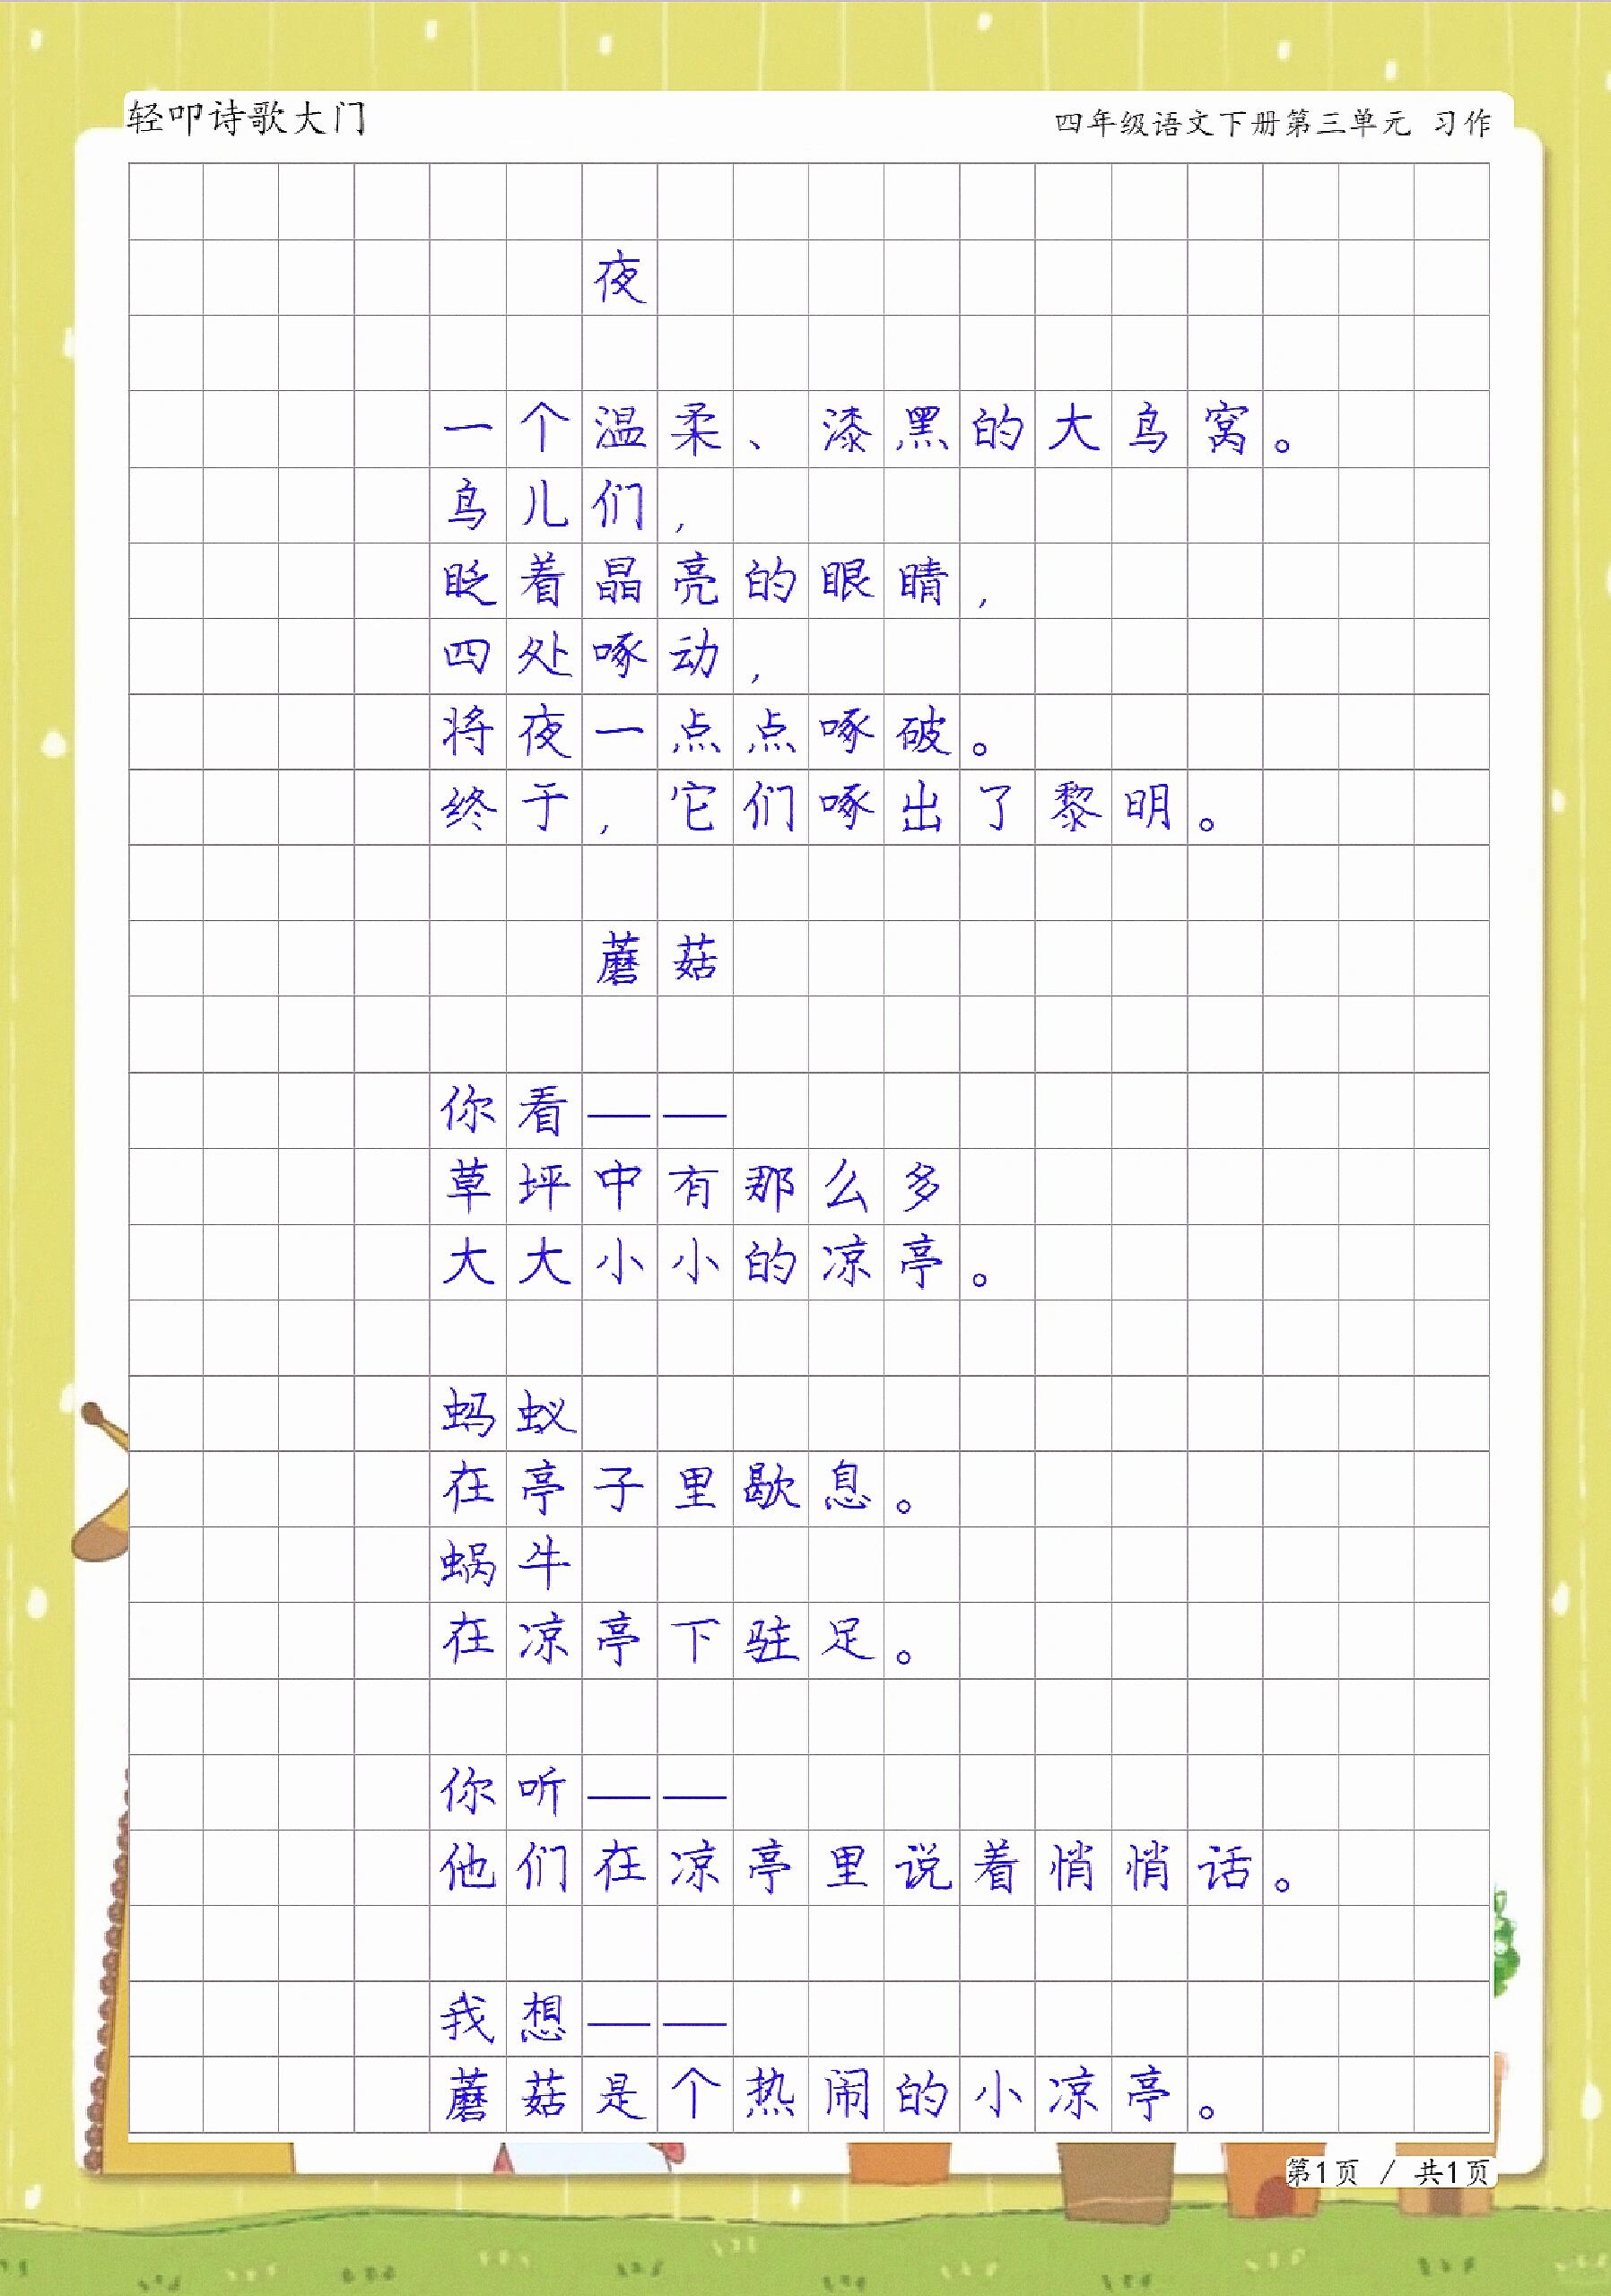 轻叩诗歌大门
四年级语文下册第三单元 习作
夜
一个温柔、漆黑的大鸟窝。
鸟儿们，
眨着晶亮的眼睛，
四处啄动，
将夜一点点啄破。
终于，它们啄出了黎明。
蘑菇
你看——
草坪中有那么多
大大小小的凉亭。
蚂蚁
在亭子里歇息。
蜗牛
在凉亭下驻足。
你听——
他们在凉亭里说着悄悄话。
我想——
蘑菇是个热闹的小凉亭。
第1页 / 共1页